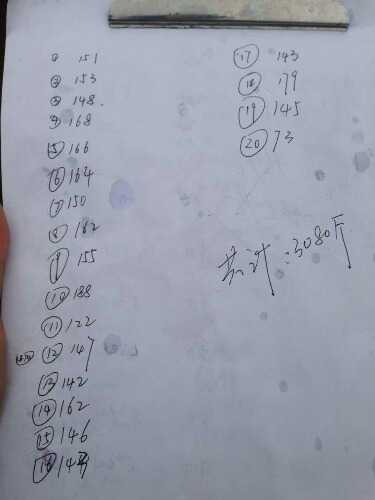 ① 151
② 153
③ 148
④ 168
⑤ 166
⑥ 164
⑦ 150
⑧ 162
⑨ 155
⑩ 188
⑪ 122
⑫ 147
⑬ 142
⑭ 162
⑮ 146
⑯
⑰ 143
⑱ 179
⑲ 145
⑳ 73
共计:3080斤